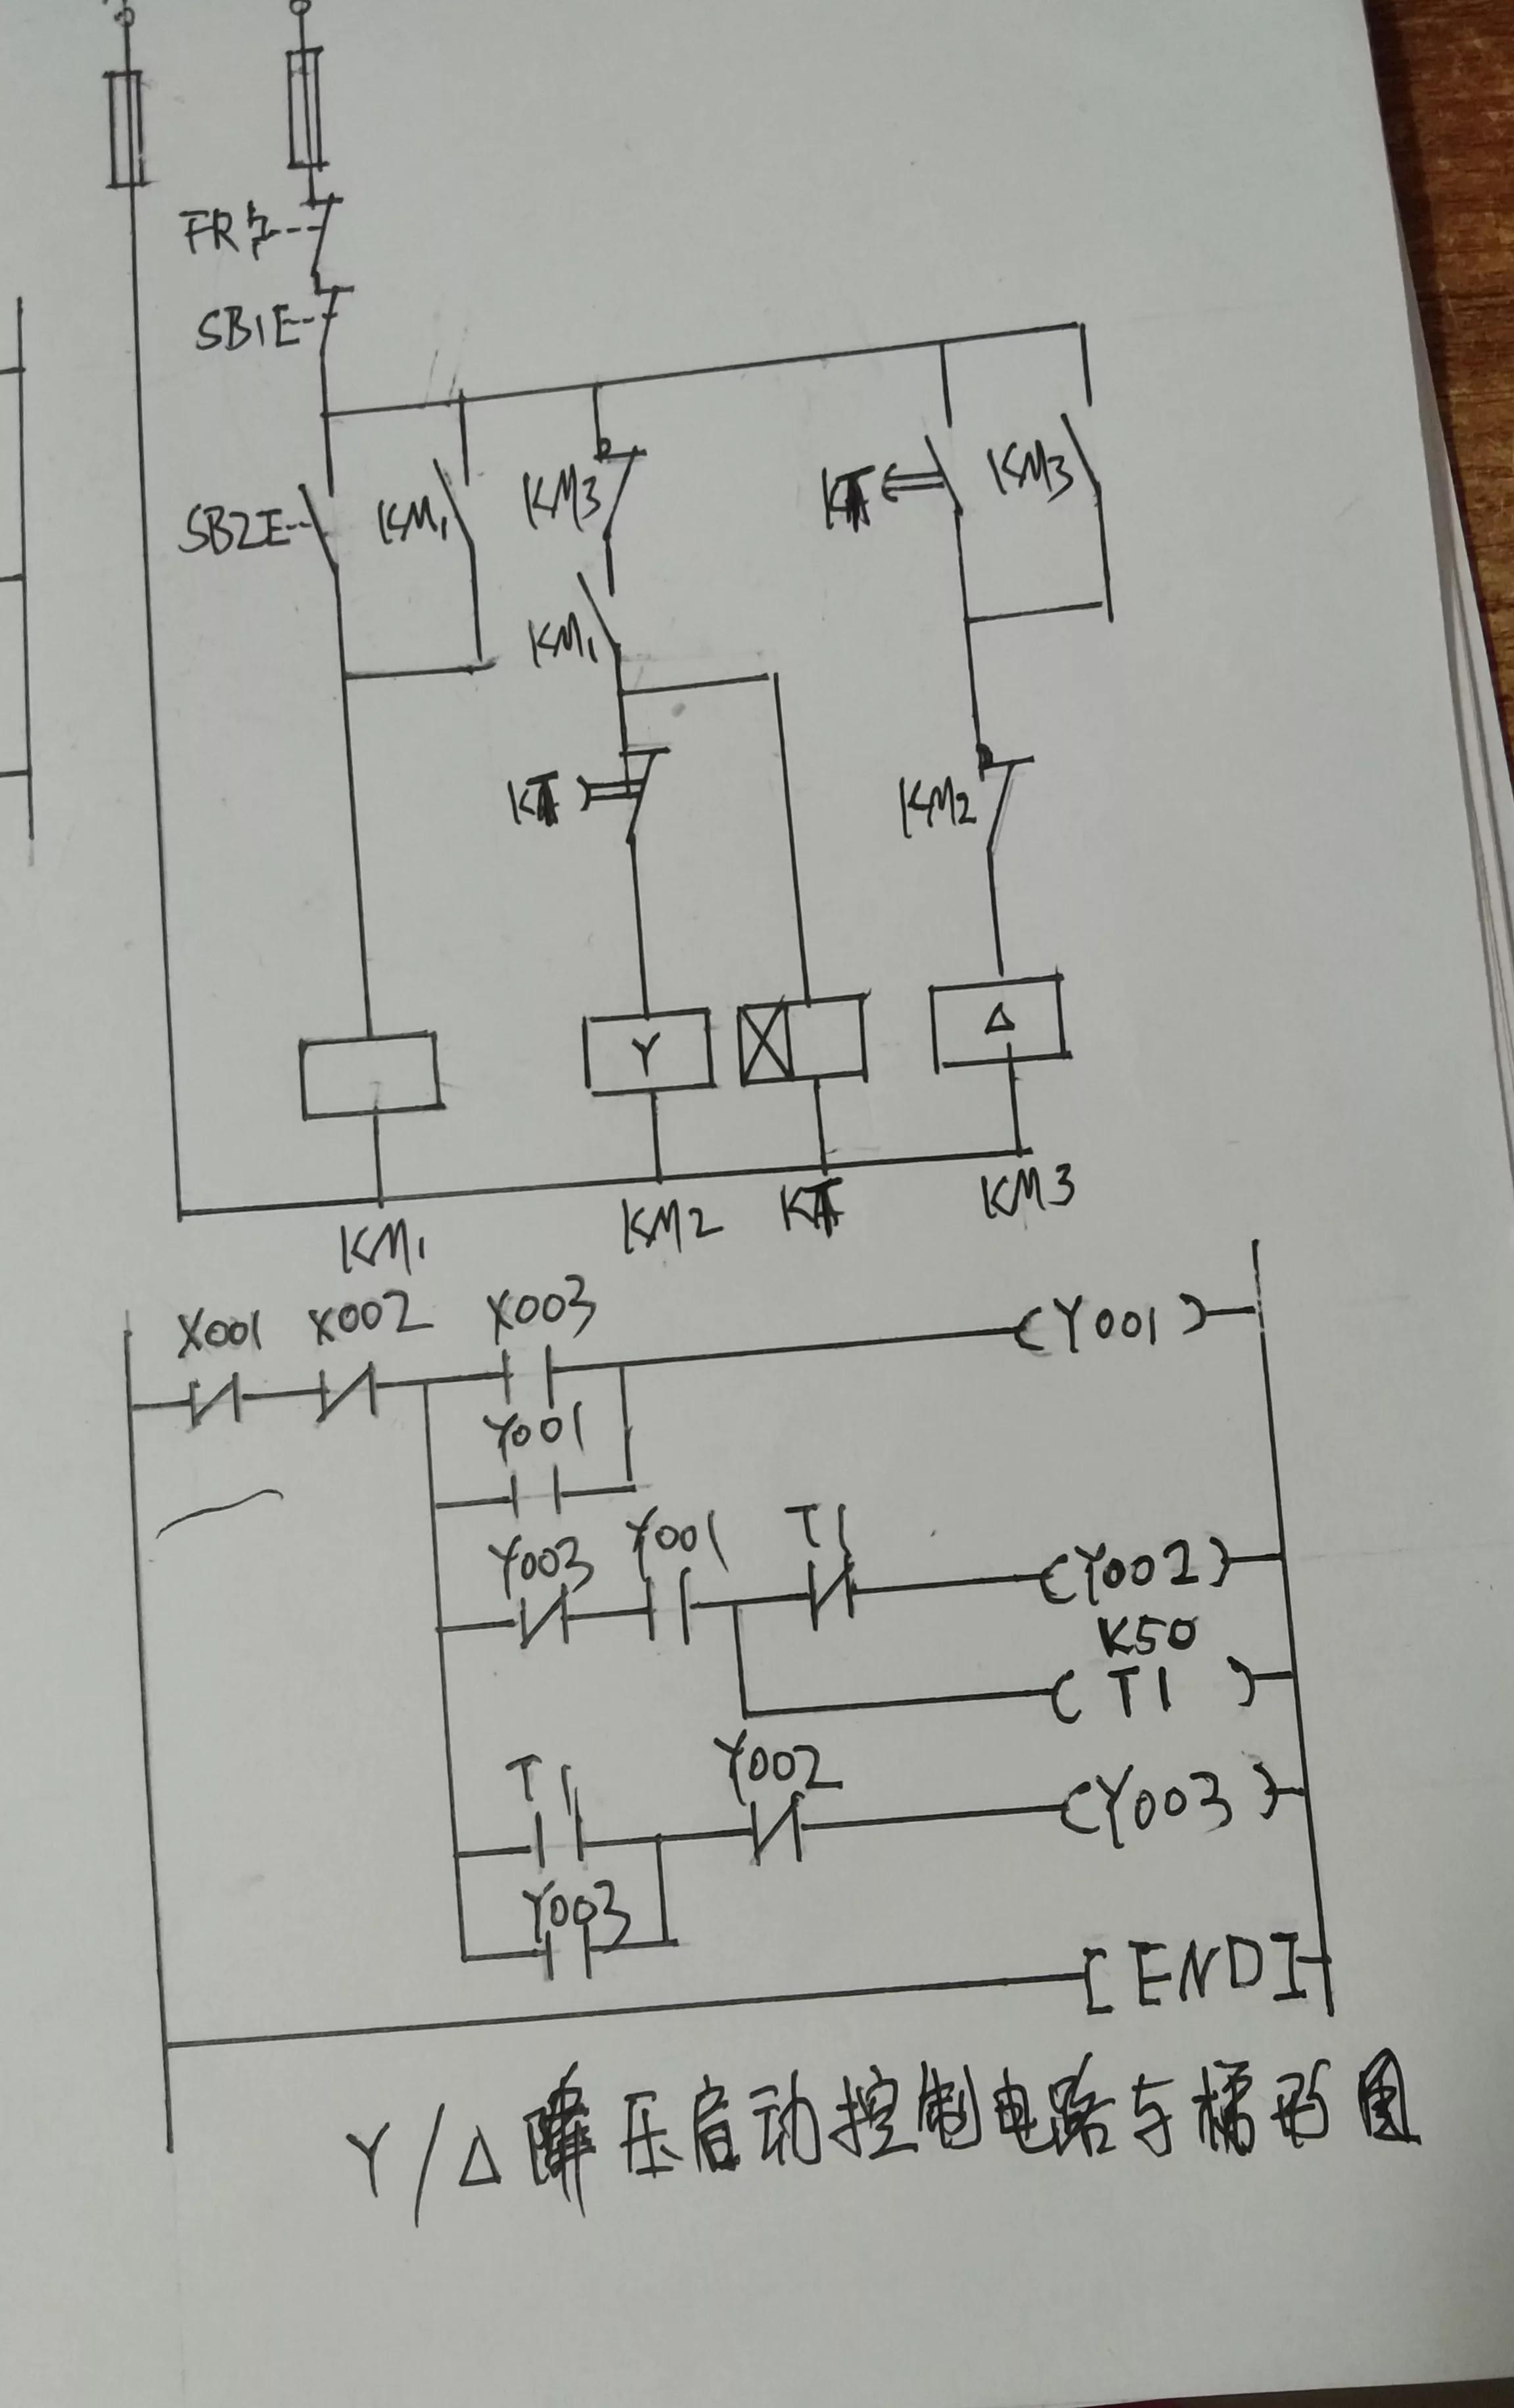 FR
SB1E
SB2E KM1 KM3 KT KM3
KM1
KT KM2
Y Δ
KM1 KM2 KT KM3
X001 X002 X003 (Y001)
Y001
Y003 Y001 T1 (Y002)
K50
(T1)
T1 Y002 (Y003)
Y003
[END]
Y/Δ降压启动控制电路与梯形图